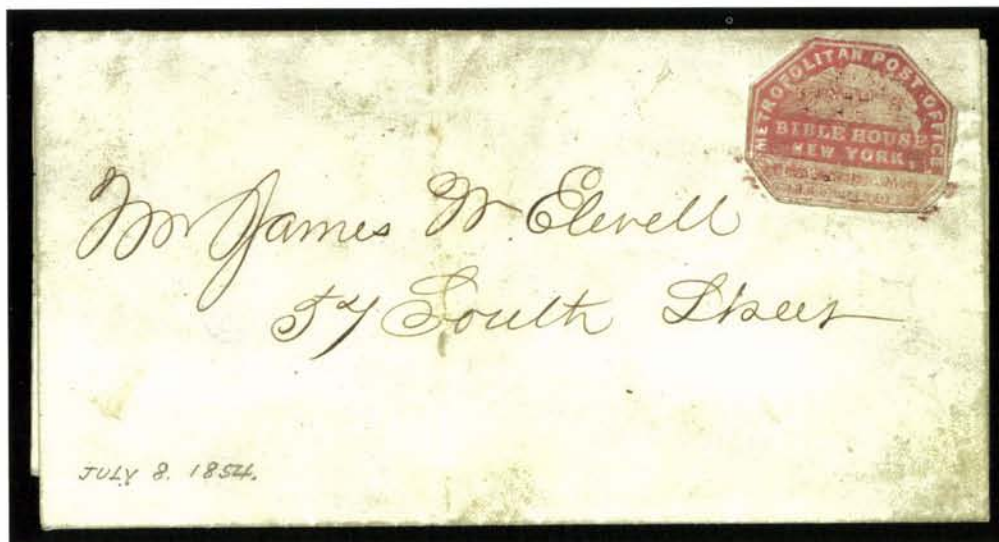 METROPOLITAN POST-OFFICE
BIBLE HOUSE
NEW YORK,
Mr James W. Elwell
57 South Street
JULY 8. 1854.